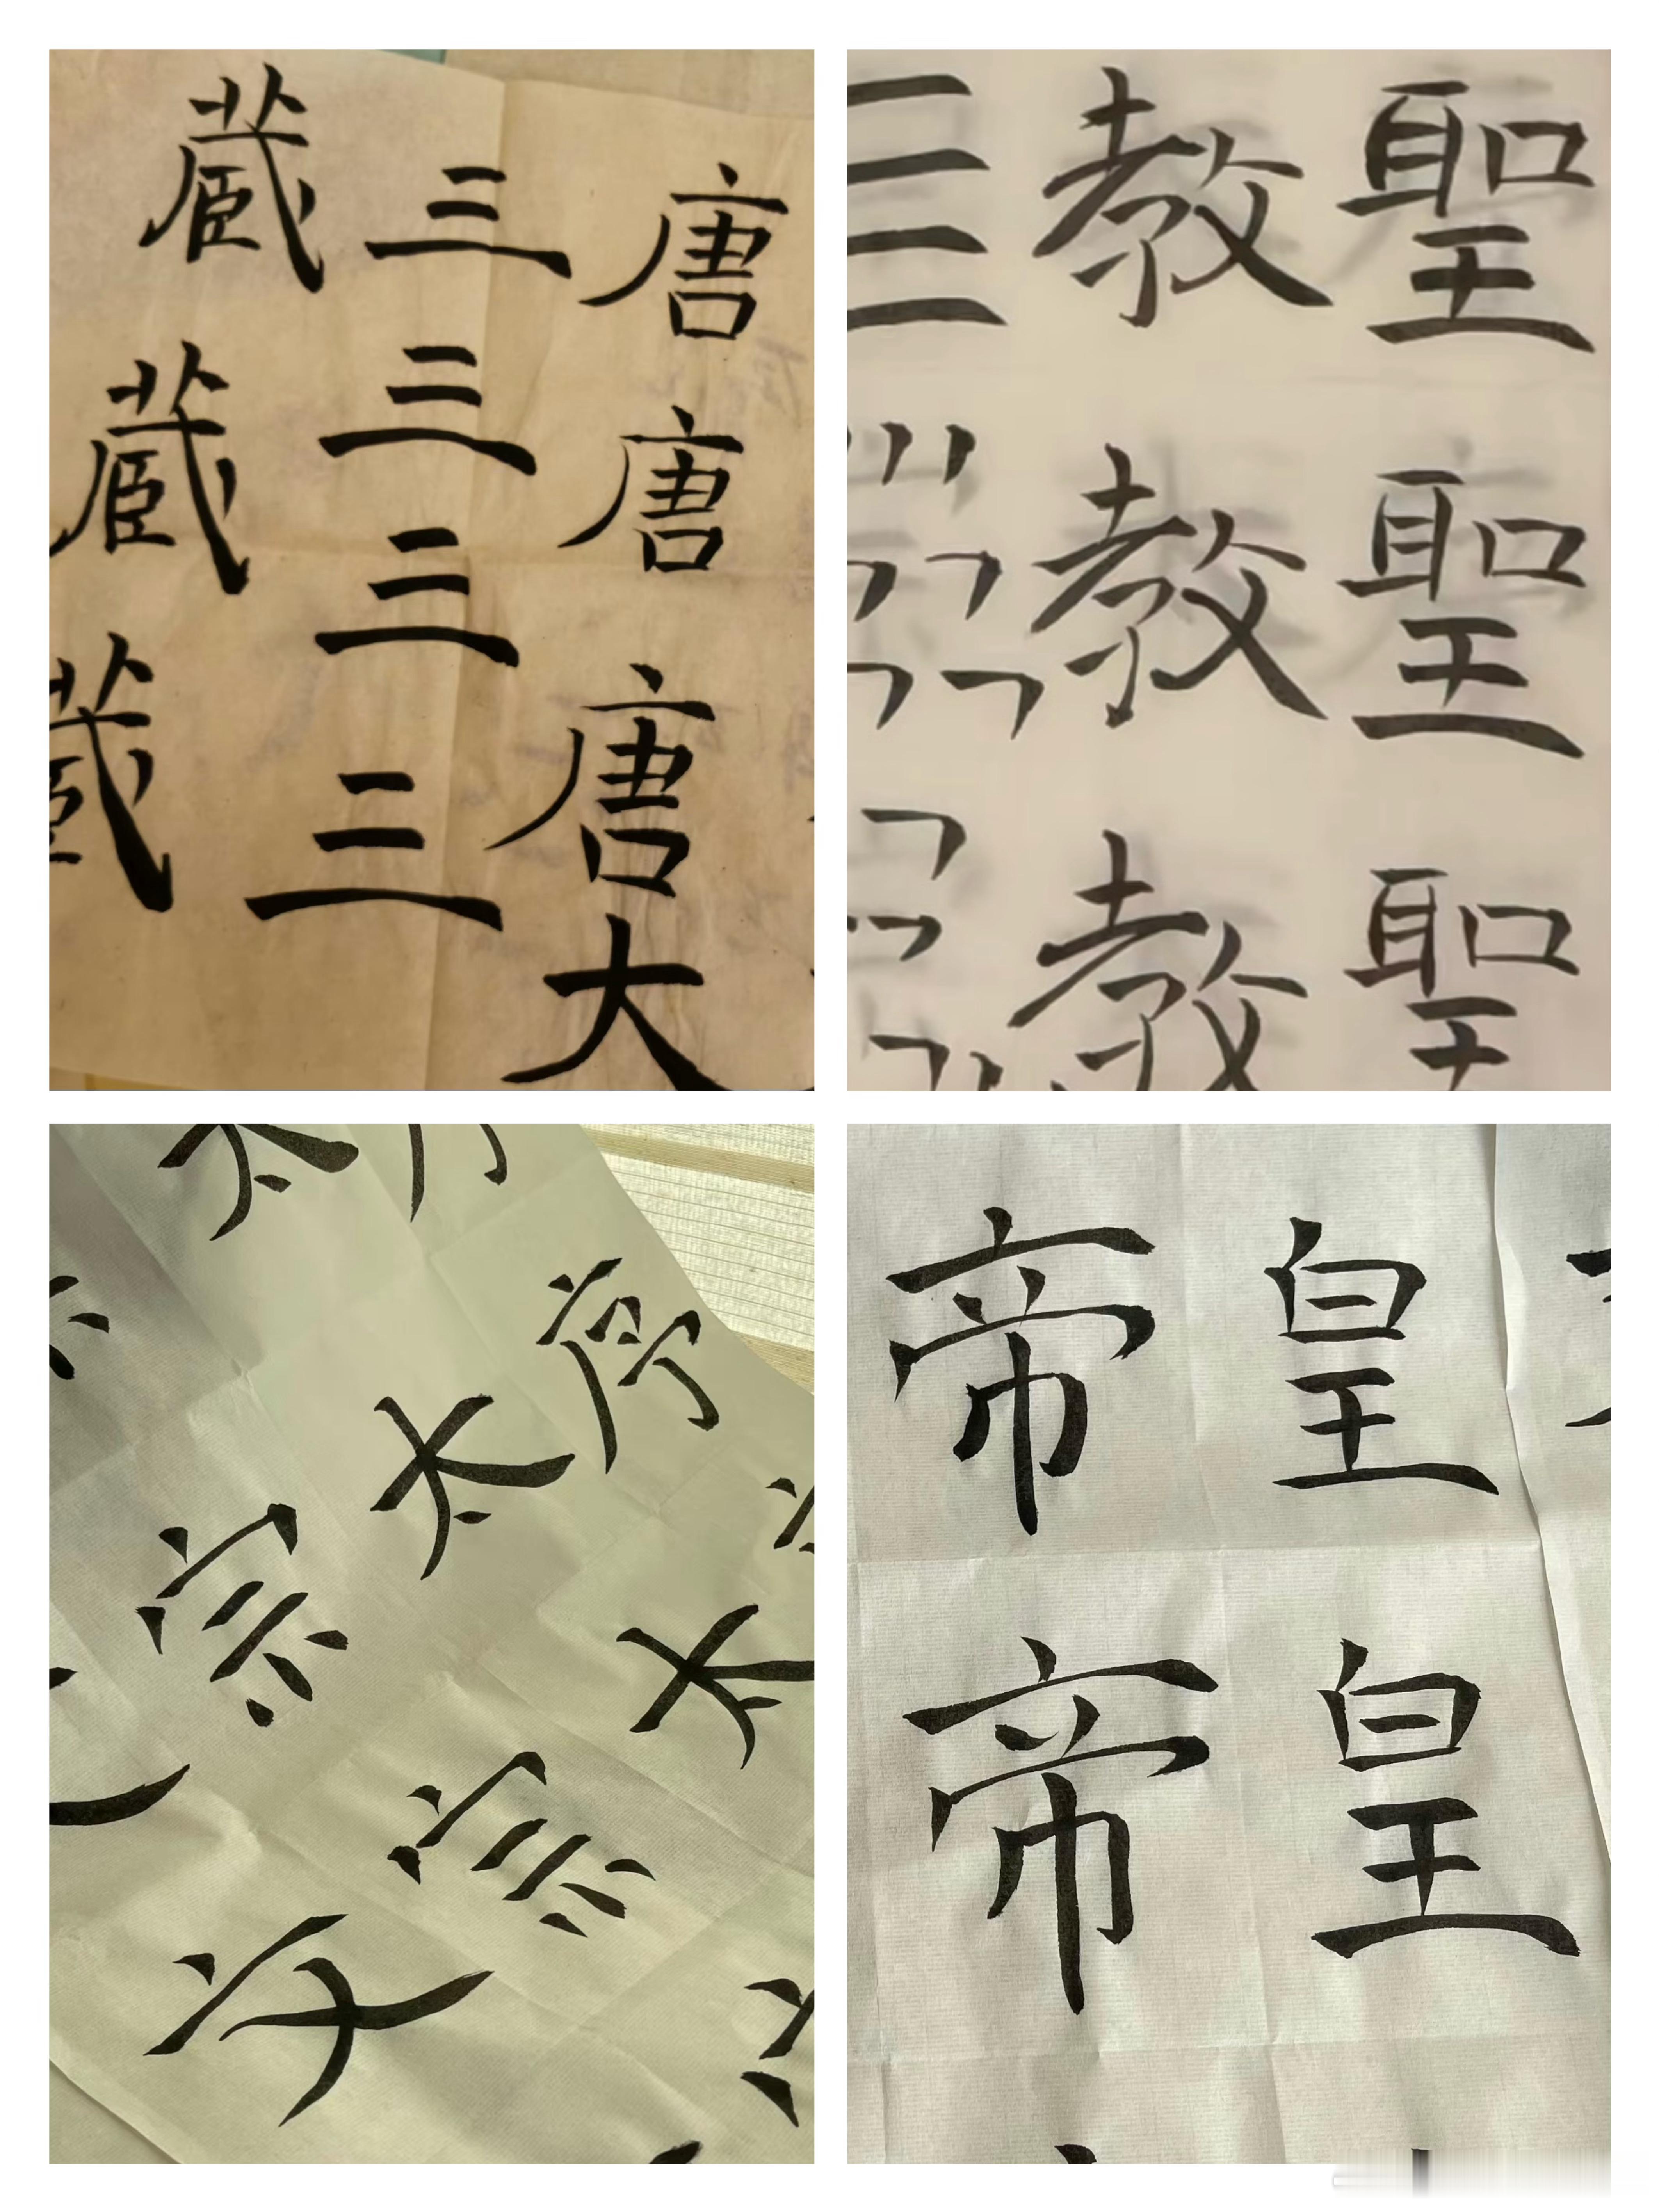 唐唐唐大
三三三三
藏藏藏
聖聖聖
教教教
序
太太太
宗宗
文
皇皇
帝帝